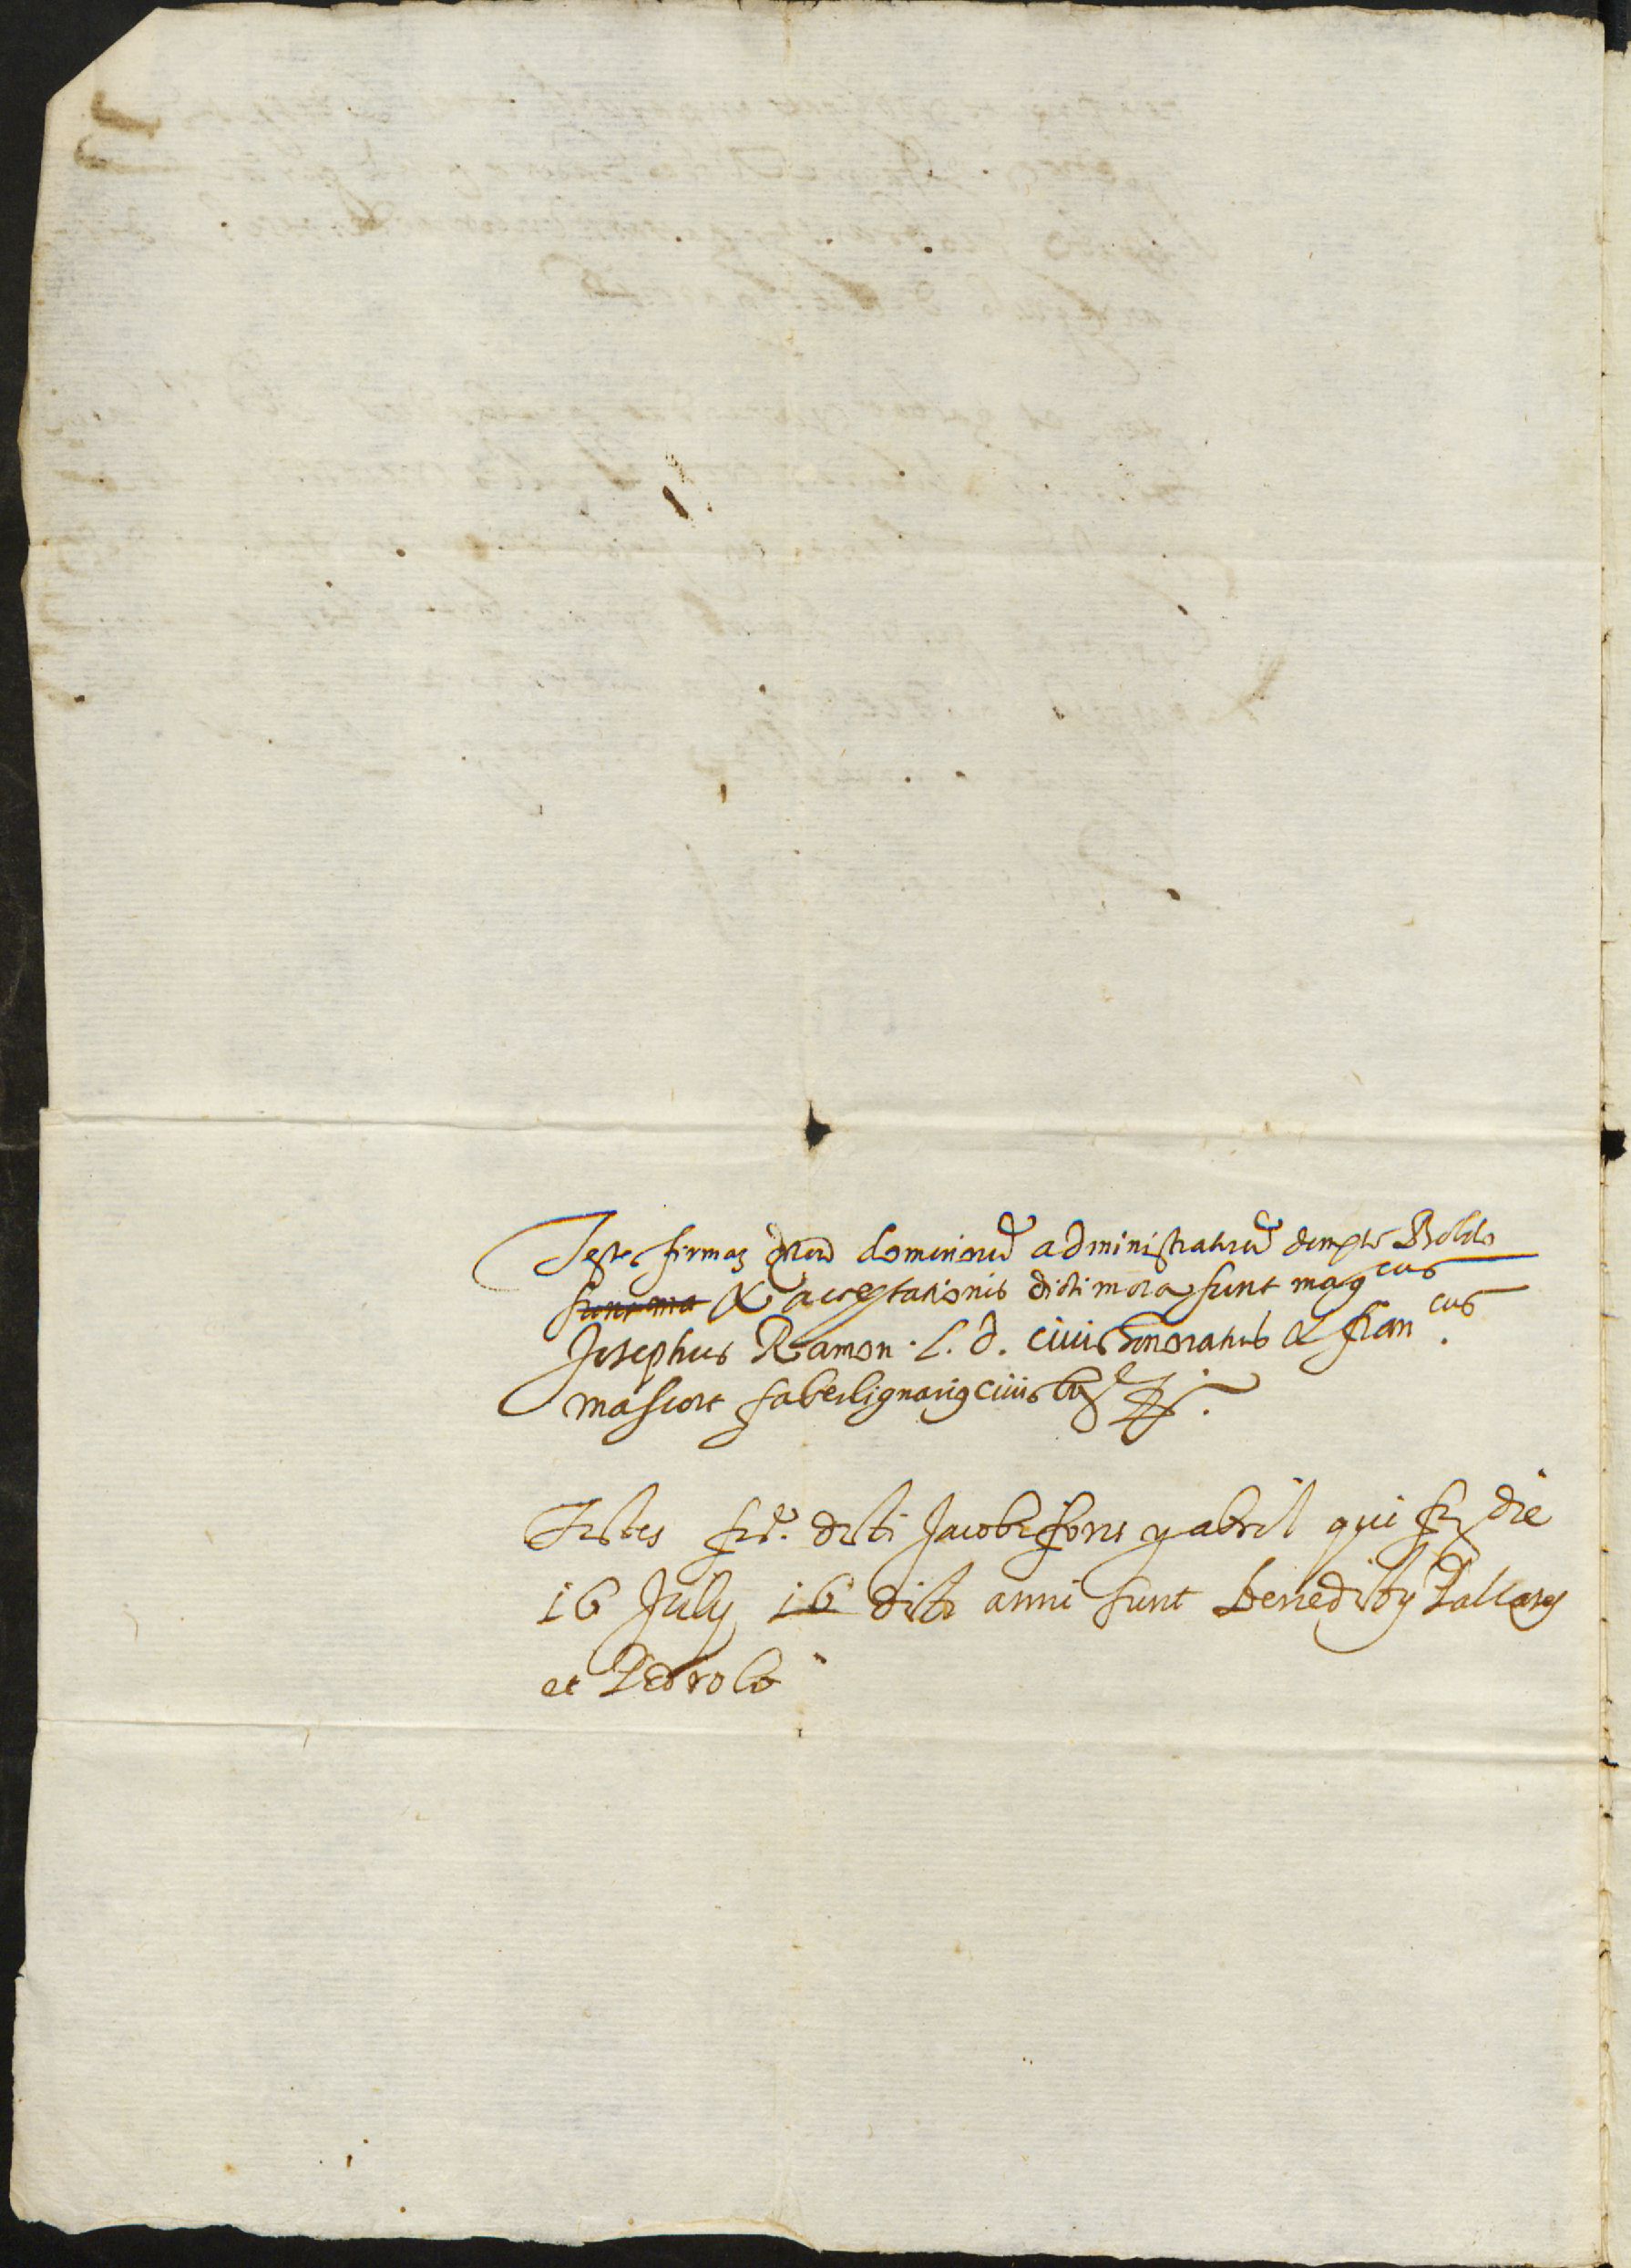 Testes firmaꝝ dictoꝝ dominorũ administratorũ dempto Boldo
sunt ma & acceptationis dicti mora sunt mag cus
Josephus Ramon . l. d. civis honoratus & fran cus
mascort faber lignariꝰ civis
Testes dicti Jacobi fons y abril qui die
16 July 16 dicti anni sunt benedictꝰ Pallares
et Pedrolo